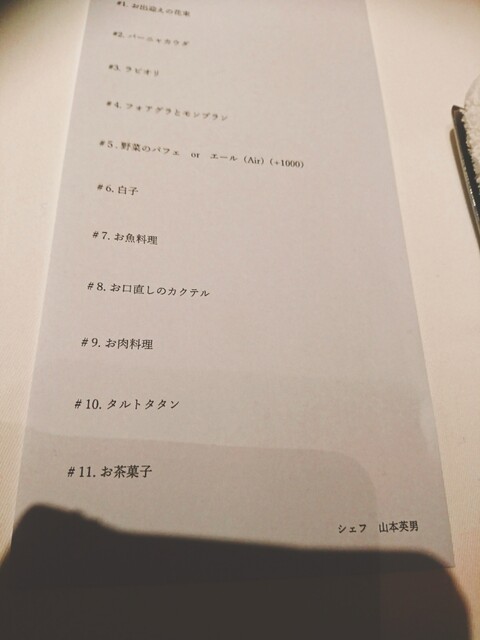 #1. お出迎えの花束
#2. バーニャカウダ
#3. ラビオリ
#4. フォアグラとモンブラン
#5. 野菜のパフェ or エール (Air) (+1000)
#6. 白子
#7. お魚料理
#8. お口直しのカクテル
#9. お肉料理
#10. タルトタタン
#11. お茶菓子
シェフ 山本英男